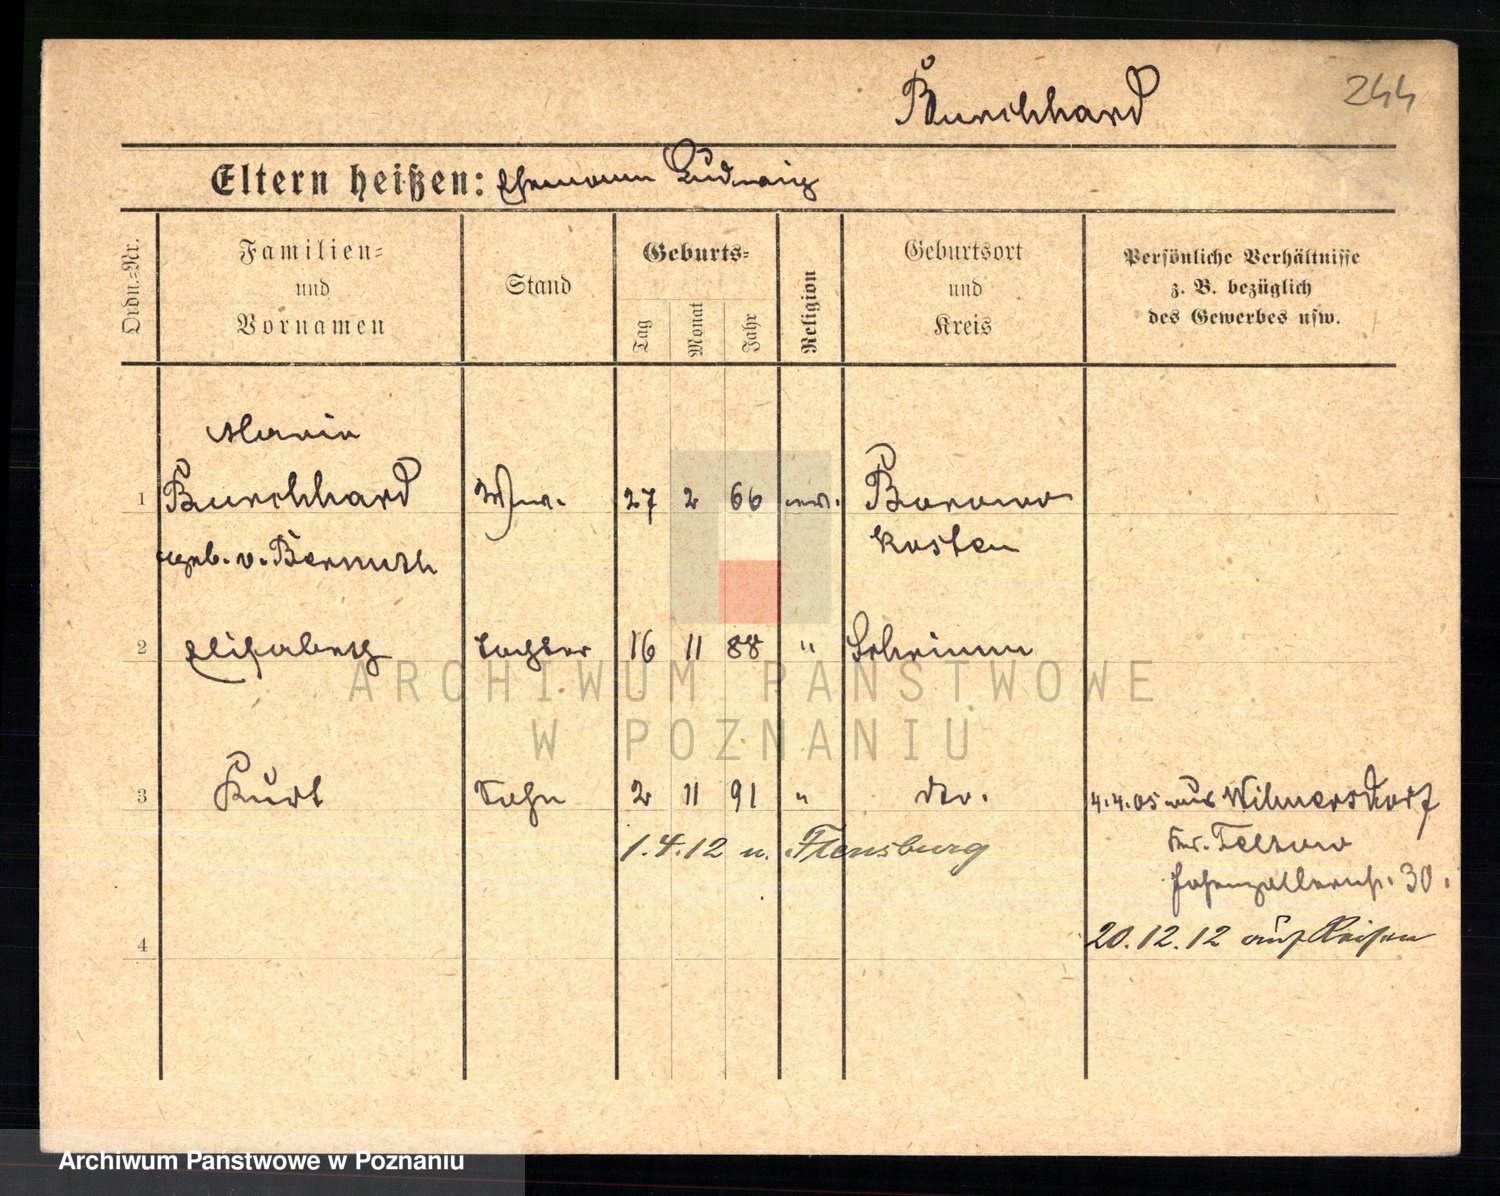 Burchhard
244
Eltern heißen: Ehemann Ludwig
Ordn.-Nr.
Familien-
und
Vornamen
Stand
Geburts-
Tag
Monat
Jahr
Religion
Geburtsort
und
Kreis
Persönliche Verhältnisse
z. B. bezüglich
des Gewerbes usw.
Marie
1 Burchhard Wwe. 27 2 66 ev. Borowo
geb. v. Bernuth Kosten
2 Elisabeth Tochter 16 11 88 " Schrimm
ARCHIWUM PAŃSTWOWE
W POZNANIU
3 Kurt Sohn 2 11 91 " dto. 4.4.05 aus Wilmersdorf
1.4.12 n. Flensburg
Kr. Teltow
Hohenzollernstr. 30.
4 20.12.12 auf Reisen
Archiwum Państwowe w Poznaniu